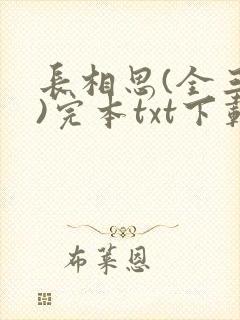 長相思(全三
)完本txt下載
布萊恩